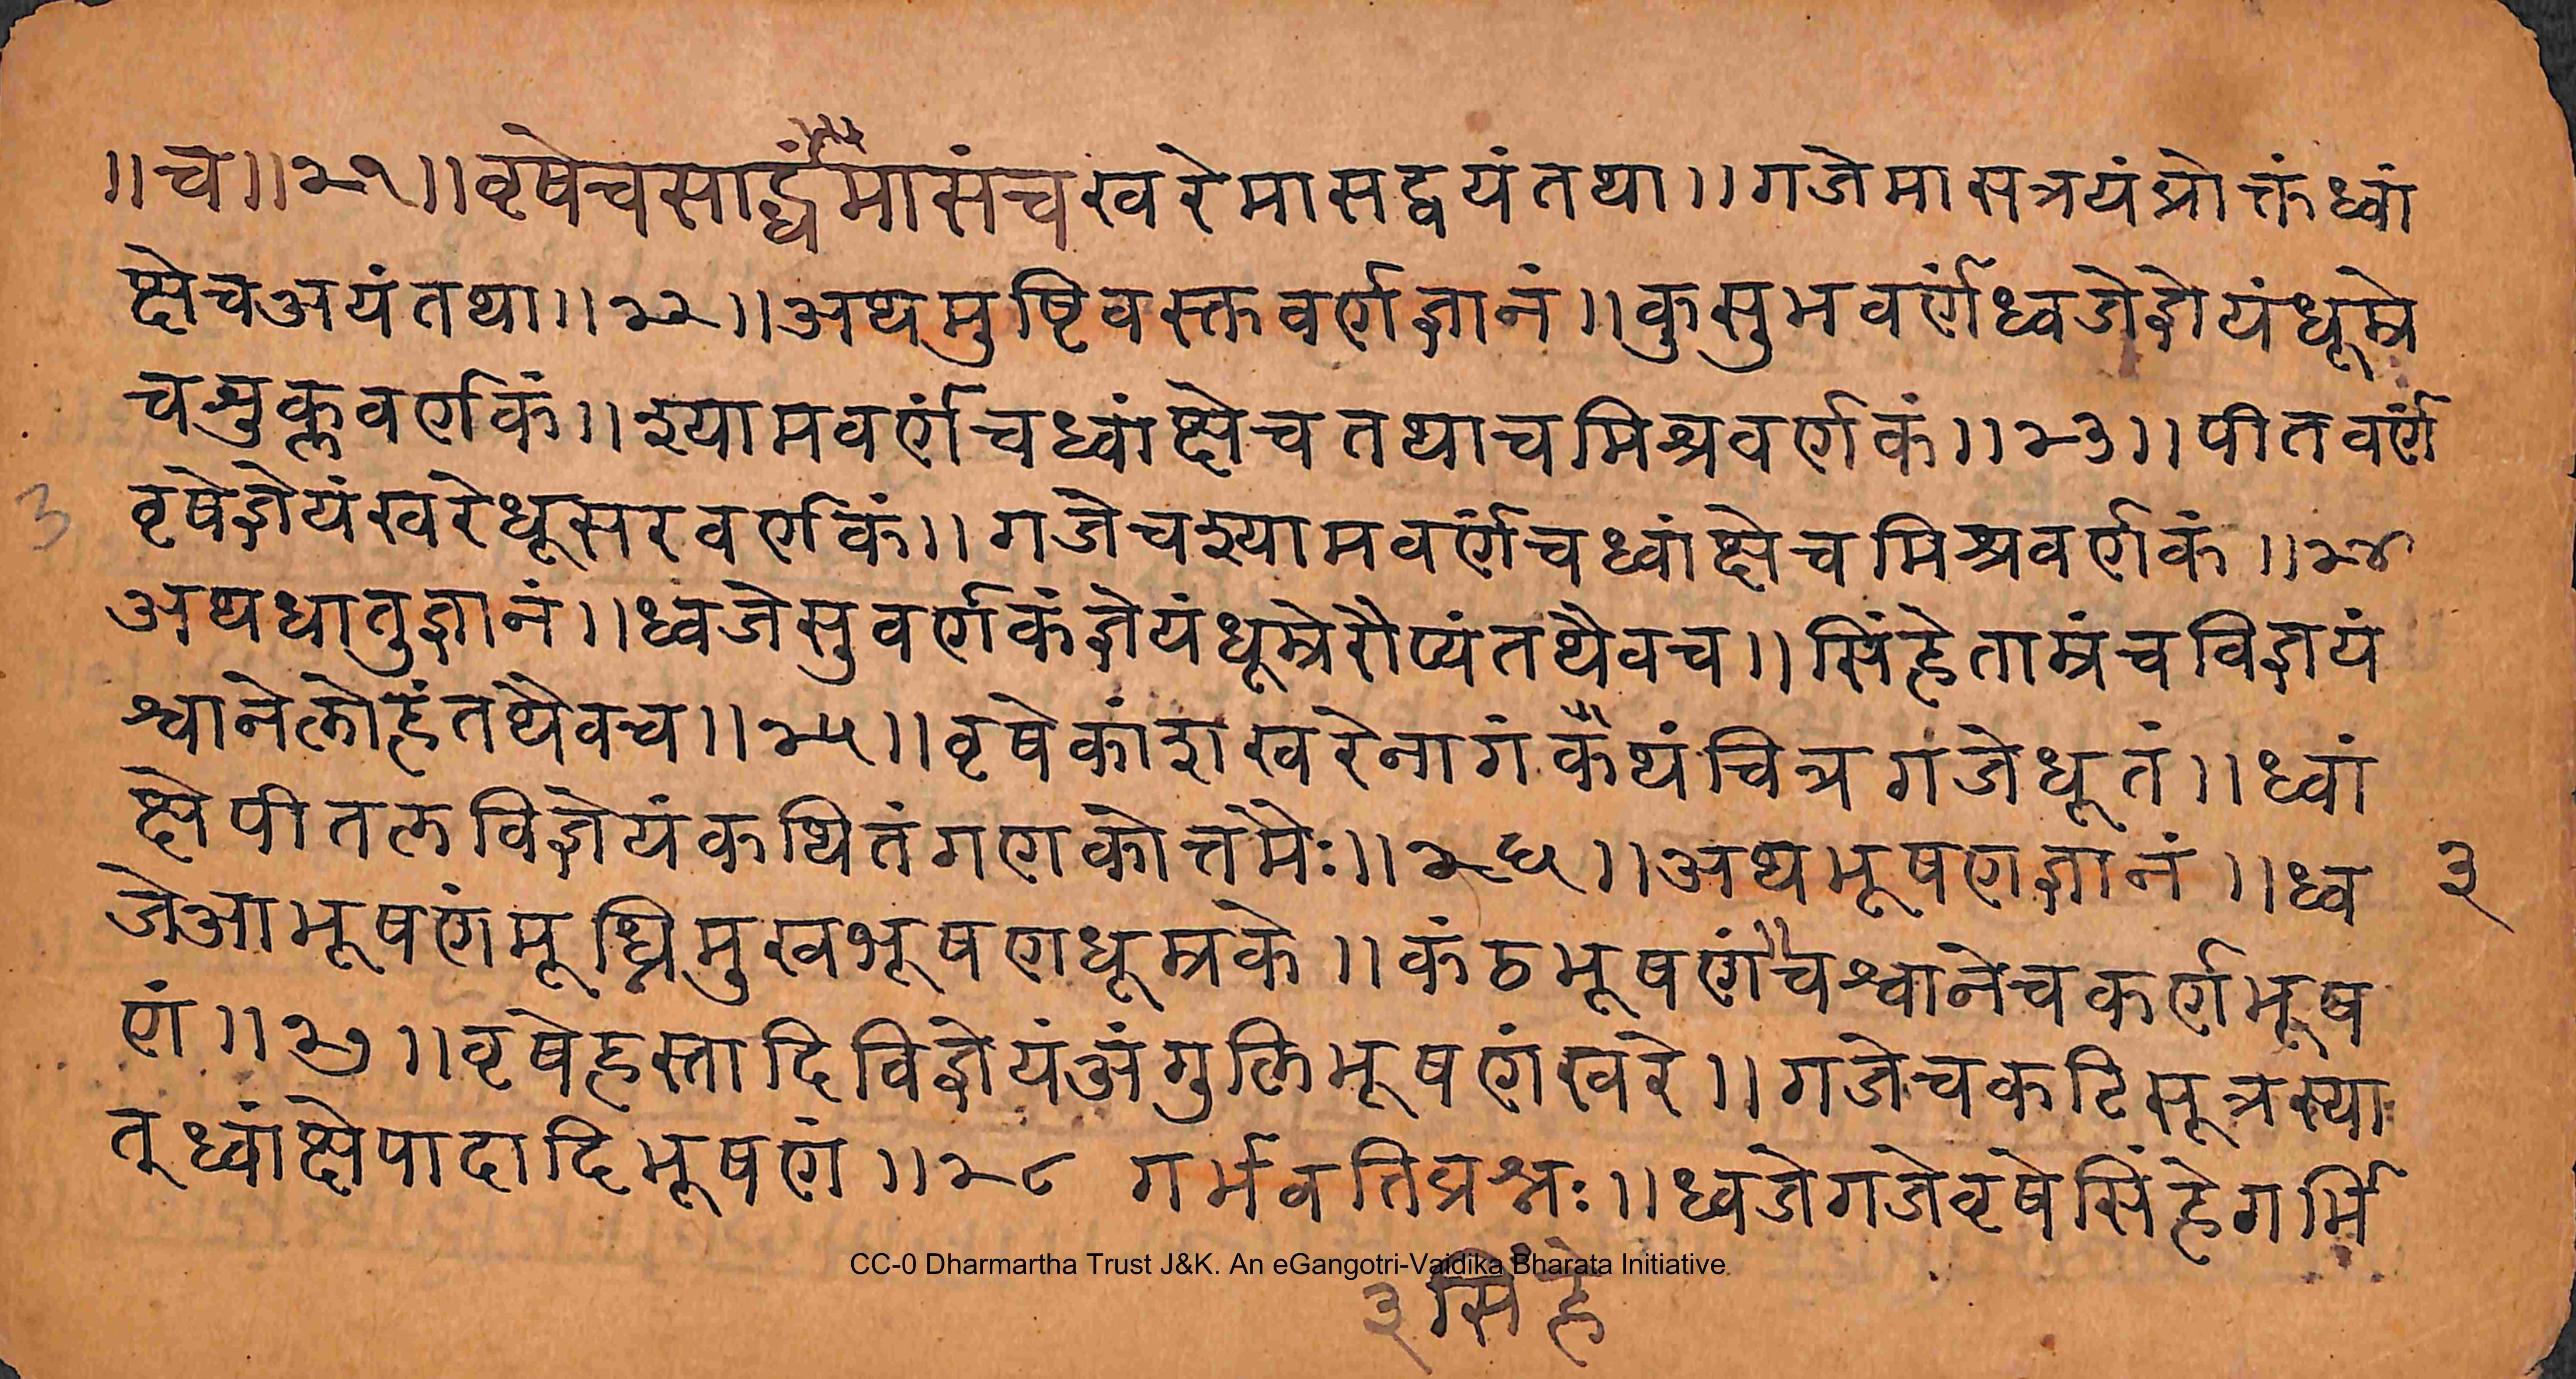 ॥च॥२१॥वृषेचसार्द्धंमासंचखरेमासद्वयंतथा॥गजेमासत्रयंप्रोक्तंध्वां
क्षेचअयंतथा॥२२॥अथमुष्टिवस्क्तवर्णज्ञानं॥कुसुमवर्णंध्वजेज्ञेयंधूम्रे
चशुक्लवर्णकं॥श्यामवर्णंचध्वांक्षेचतथाचमिश्रवर्णकं॥२३॥पीतवर्णं
वृषेज्ञेयंखरेधूसरवर्णकं॥गजेचश्यामवर्णंचध्वांक्षेचमिश्रवर्णकं॥२४
3
अथधातुज्ञानं॥ध्वजेसुवर्णकंज्ञेयंधूम्रेरौप्यंतथैवच॥सिंहेताम्रंचविज्ञयं
श्वानेलोहंतथैवच॥२५॥वृषेकांशखरेनागंकैथंचित्रगजेधूतं॥ध्वां
क्षेपीतलविज्ञेयंकथितंगणकोत्तमैः॥२६॥अथभूषणज्ञानं॥ध्व
३
जेआभूषणंमूर्ध्निमुखभूषणधूम्रके॥कंठभूषणंचैश्वानेचकर्णभूष
णं॥२७॥वृषेहस्तादिविज्ञेयंअंगुलिभूषणंखरे॥गजेचकटिसूत्रंस्या
त्ध्वांक्षेपादादिभूषणं॥२८ गर्भवतिप्रश्नः॥ध्वजेगजेवृषेसिंहेगर्भि
CC-0 Dharmartha Trust J&K. An eGangotri-Vaidika Bharata Initiative
३सिंहे